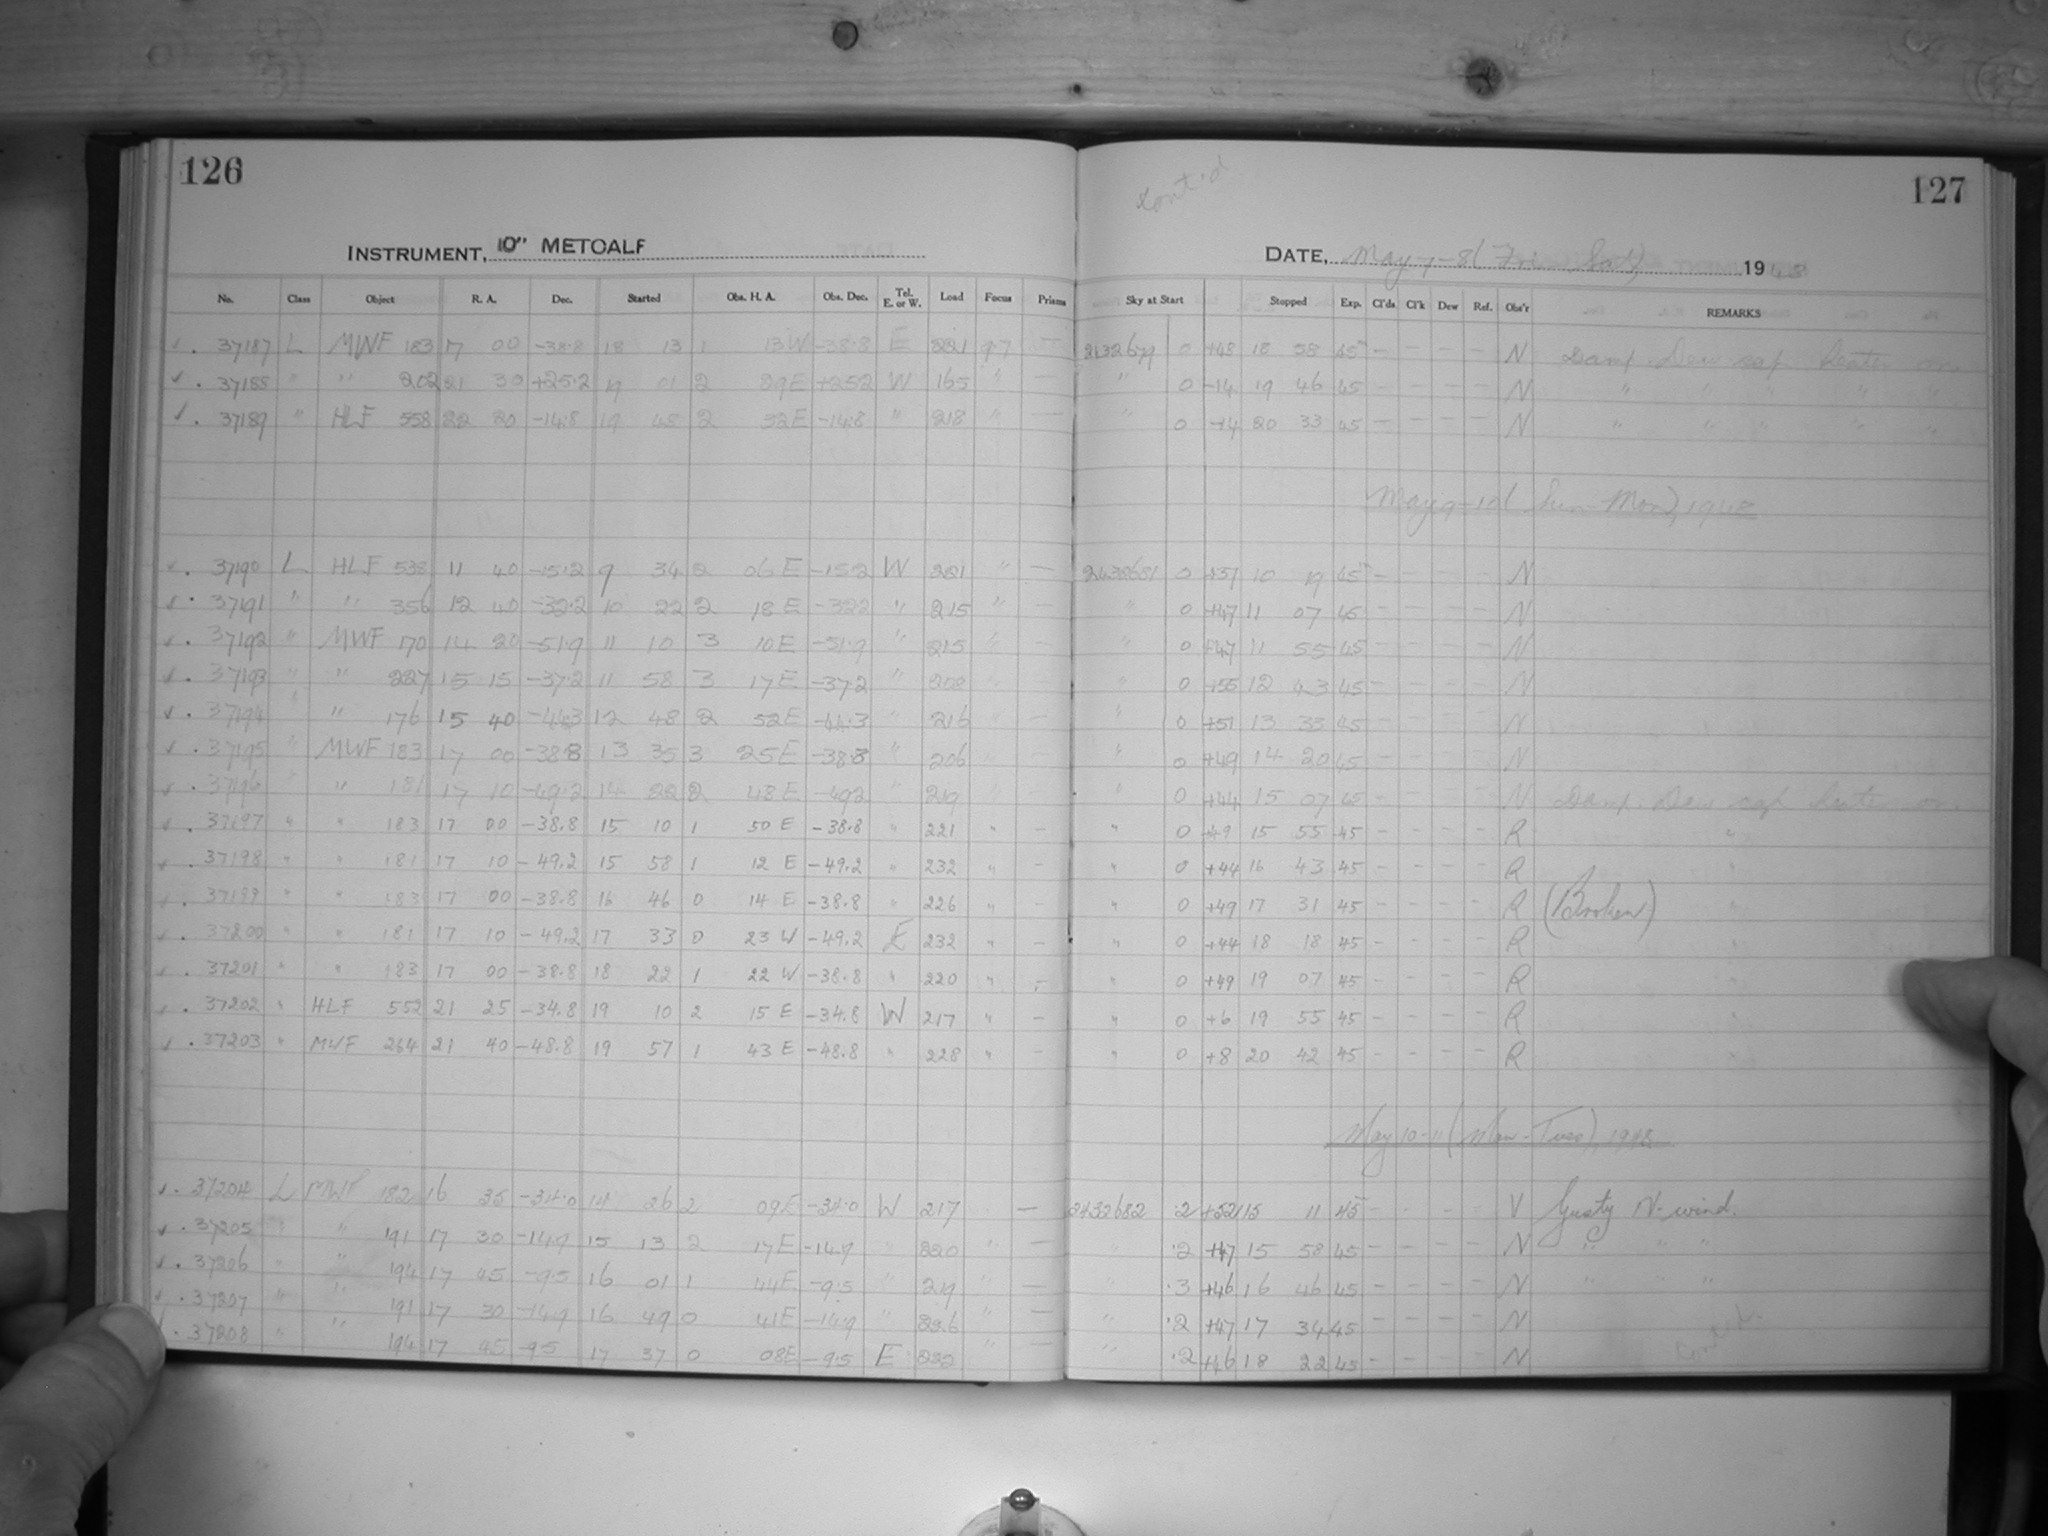 126
INSTRUMENT, 10" METCALF
No. Class Object R. A. Dec. Started Obs. H. A. Obs. Dec. Tel. E. or W. Load Focus Prisms
Cont'd
127
DATE, May 7-8 (Fri-Sat) 1948
Sky at Start Stopped Exp. Cl'ds Cl'k Dew Ref. Obs'r REMARKS
37187 L MWF 183 17 00 -38.8 18 13 1 13W -38.8 E 221 97 — 2432679 0 +48 18 58 45 — — — — N Damp. Dew cap heater on.
37188 " " 202 21 30 +25.2 19 01 2 29E +252 W 165 " — " 0 -14 19 46 45 — — — — N " " " " "
37189 " HLF 558 22 20 -14.8 19 48 2 32E -14.8 " 218 " — " 0 -14 20 33 45 — — — — N " " " " "
May 9-10 (Sun-Mon), 1948
37190 L HLF 538 11 40 -15.2 9 34 2 06 E -15.2 W 221 " — 2432681 0 +37 10 19 45 — — — — N
37191 " " 356 12 40 -32.2 10 22 2 18 E -322 " 215 " — " 0 +47 11 07 45 — — — — N
37192 " MWF 170 14 20 -51.9 11 10 3 10E -51.9 " 215 " — " 0 +47 11 55 45 — — — — N
37193 " " 227 15 15 -37.2 11 58 3 17E -372 " 208 " — " 0 +55 12 43 45 — — — — N
37194 " " 176 15 40 -44.3 12 48 2 52E -44.3 " 216 " — " 0 +51 13 33 45 — — — — N
37195 " MWF 183 17 00 -38.8 13 35 3 25E -38.8 " 206 " — " 0 +49 14 20 45 — — — — N
37196 " " 181 17 10 -49.2 14 22 2 48E -492 " 219 " — " 0 +44 15 07 45 — — — — N Damp. Dew cap heater on.
37197 " " 183 17 00 -38.8 15 10 1 50 E -38.8 " 221 " — " 0 +49 15 55 45 — — — — R "
37198 " " 181 17 10 -49.2 15 58 1 12 E -49.2 " 232 " — " 0 +44 16 43 45 — — — — R "
37199 " " 183 17 00 -38.8 16 46 0 14 E -38.8 " 226 " — " 0 +49 17 31 45 — — — — R (Broken) "
37200 " " 181 17 10 -49.2 17 33 0 23 W -49.2 E 232 " — " 0 +44 18 18 45 — — — — R "
37201 " " 183 17 00 -38.8 18 22 1 22 W -38.8 " 220 " — " 0 +49 19 07 45 — — — — R "
37202 " HLF 552 21 25 -34.8 19 10 2 15 E -34.8 W 217 " — " 0 +6 19 55 45 — — — — R "
37203 " MWF 264 21 40 -48.8 19 57 1 43 E -48.8 " 228 " — " 0 +8 20 42 45 — — — — R "
May 10-11 (Mon-Tues), 1948
37204 L MWF 182 16 35 -34.0 14 26 2 09E -34.0 W 217 — 2432682 .2 +52 15 11 45 — — — — V Gusty N-wind.
37205 " " 191 17 30 -14.9 15 13 2 17E -14.9 " 220 " — " .2 +47 15 58 45 — — — — N " " "
37206 " " 194 17 45 -9.5 16 01 1 44E -9.5 " 219 " — " .3 +46 16 46 45 — — — — N " "
37207 " " 191 17 30 -14.9 16 49 0 41E -14.9 " 226 " — " .2 +47 17 34 45 — — — — N
37208 " " 194 17 45 -9.5 17 37 0 08E -9.5 E 232 " — " .2 +46 18 22 45 — — — — N
Cont'd.